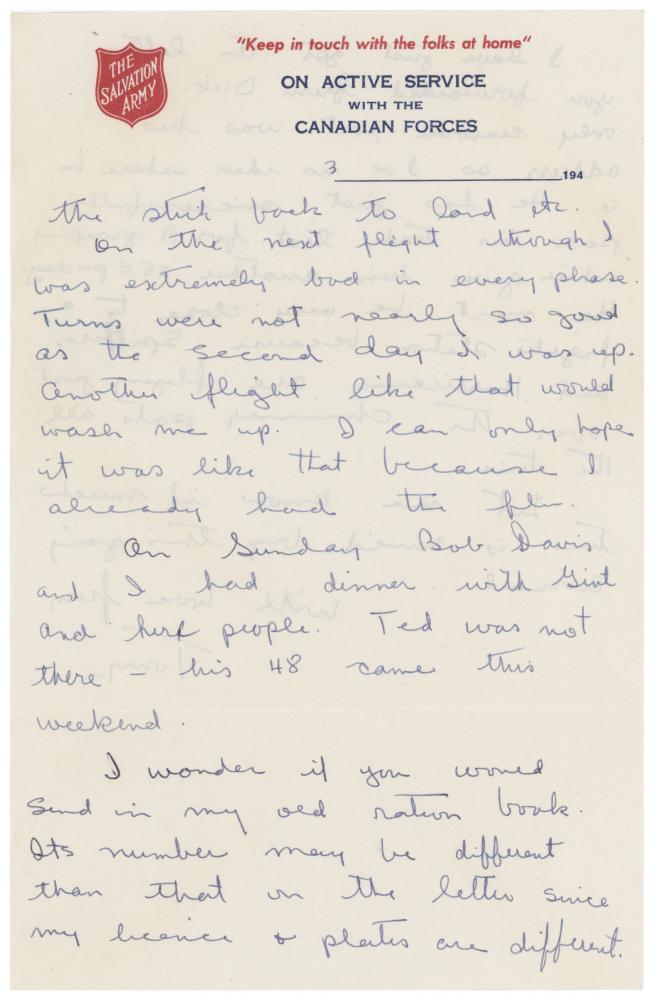 THE
SALVATION
ARMY
"Keep in touch with the folks at home"
ON ACTIVE SERVICE
WITH THE
CANADIAN FORCES
3 194
the stick back to land etc.
On the next flight though I
was extremely bad in every phase.
Turns were not nearly so good
as the second day I was up.
Another flight like that would
wash me up. I can only hope
it was like that because I
already had the flu.
On Sunday Bob Davis
and I had dinner with
and people. Ted was not
there – his 48 came this
weekend.
I wonder if you would
send in my old ration book.
Its number may be different
than that on the letter since
my licence & plates are different.